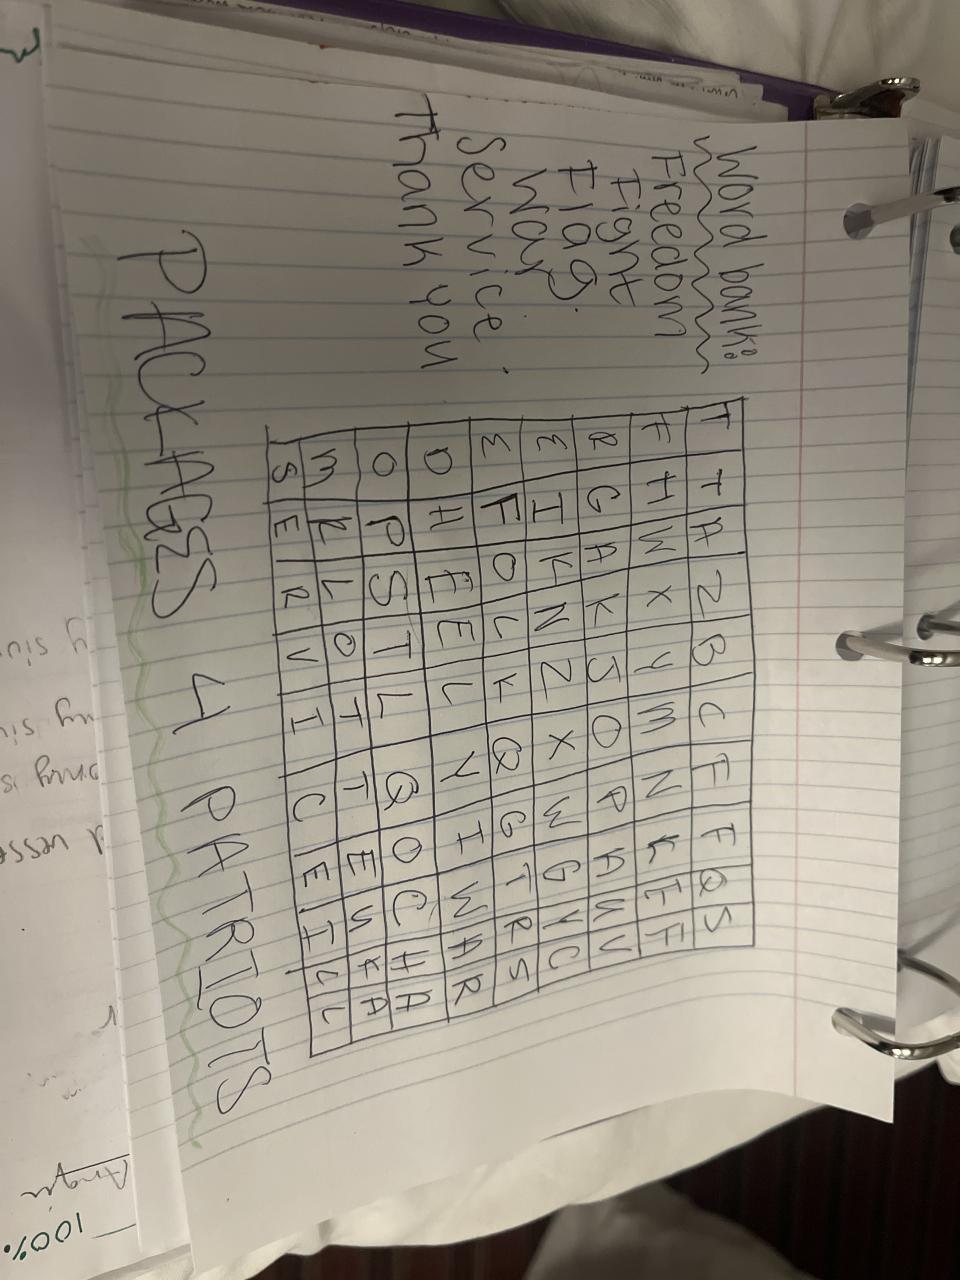 Word bank:
Freedom
Fight
Flag.
War
Service.
Thank you
T T A Z B C F F Q S
F H W X Y M N K E F
R G A K J O P A U V
E I K N Z X W G Y C
E F O L K Q G T R S
D H E E L Y I W A R
O P S T L Q O C H A
M K L O T T E U K A
S E R V I C E I L L
PACKAGES 4 PATRIOTS
100%.